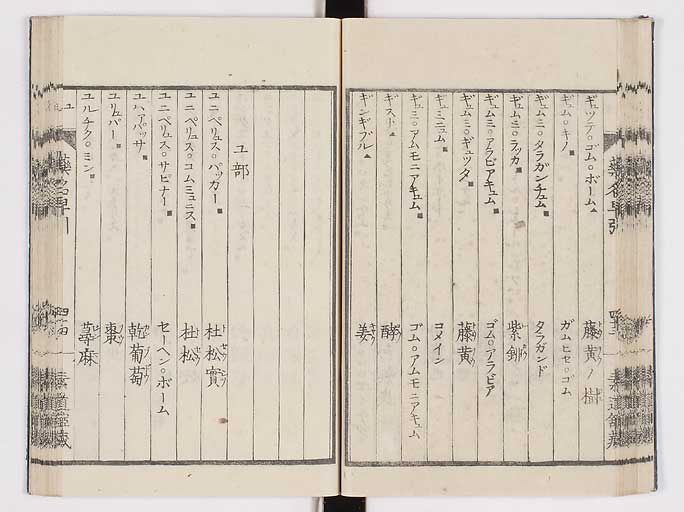 ギッテ○ゴム○ボーム 藤黄ノ樹
ギュム○キノ ガムヒセ○ゴム
ギュムミ○タラガンチュム タラガンド
ギュムミ○ラッカ 紫鉚
ギュムミ○アラビアキュム ゴム○アラビア
ギュムミ○ギュッタ 藤黄
ギュミニュム コメイン
ギュミ○アムモニアキュム ゴム○アムモニアキュム
ギスト 酵
ギンギブル 姜
ユ部
ユニペリュス○バッガー 杜松實
ユニペリュス○コムミュニス 杜松
ユニペリュス○サビナー セーヘン○ボーム
ユハ アパッサ 乾葡萄
ユリュバー 棗
ユルチク○ミン 蕁麻